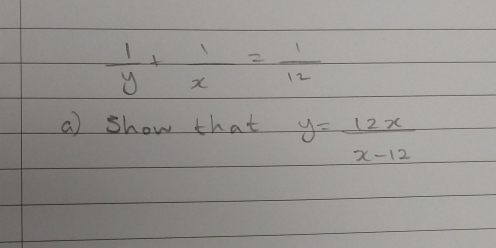 1/y + 1/x = 1/12
a) Show that y= 12x/x-12